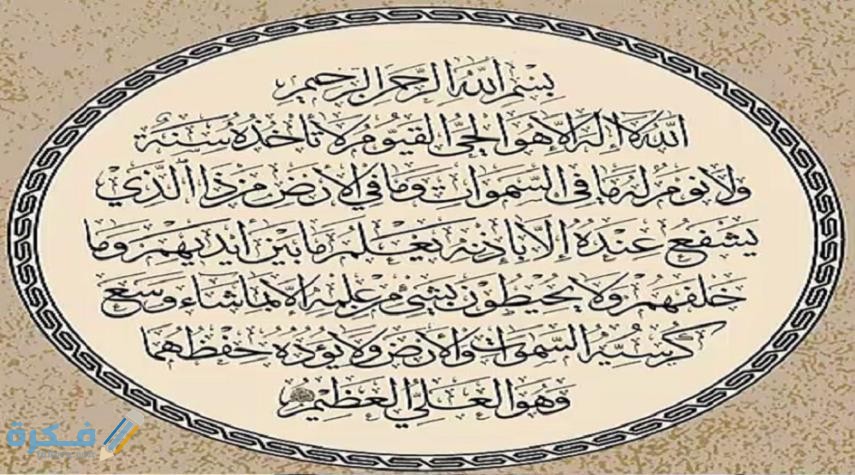 بِسْمِ اللَّهِ الرَّحْمَنِ الرَّحِيمِ
اللَّهُ لَا إِلَهَ إِلَّا هُوَ الْحَيُّ الْقَيُّومُ لَا تَأْخُذُهُ سِنَةٌ
وَلَا نَوْمٌ لَهُ مَا فِي السَّمَوَاتِ وَمَا فِي الْأَرْضِ مَنْ ذَا الَّذِي
يَشْفَعُ عِنْدَهُ إِلَّا بِإِذْنِهِ يَعْلَمُ مَا بَيْنَ أَيْدِيهِمْ وَمَا
خَلْفَهُمْ وَلَا يُحِيطُونَ بِشَيْءٍ مِنْ عِلْمِهِ إِلَّا بِمَا شَاءَ وَسِعَ
كُرْسِيُّهُ السَّمَوَاتِ وَالْأَرْضَ وَلَا يَؤُدُهُ حِفْظُهُمَا
وَهُوَ الْعَلِيُّ الْعَظِيمُ
فكرة